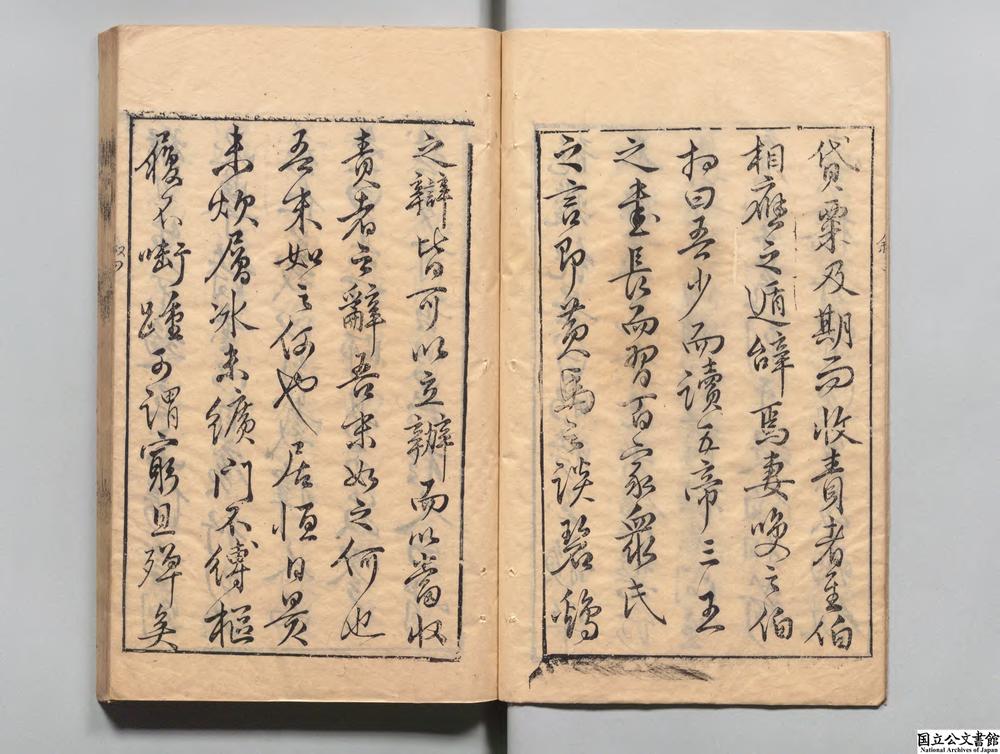 貸粟及期而收責者至伯
相應之遁辭焉妻唉之伯
相曰吾少而讀五帝三王
之書長而習百家衆氏
之言即黄馬之談碧鷄
之辯皆可以立辦而以當收
責者之辭吾未如之何也
吾未如之何也居恒日昃
未炊層冰未纊門不縛樞
履不嘶踵可謂窮且殫矣
国立公文書館
National Archives of Japan